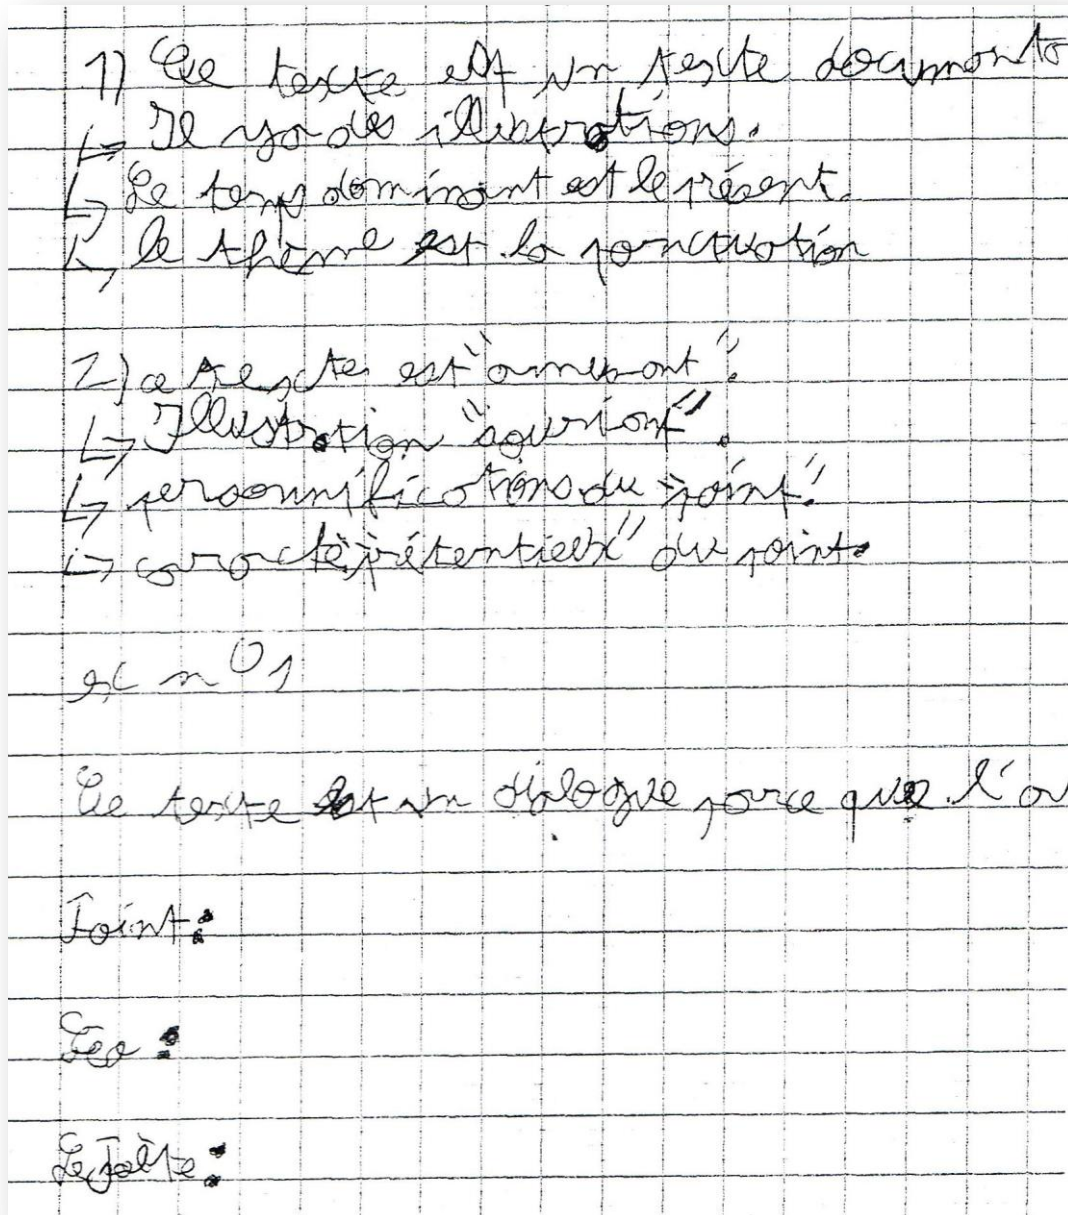 1) Ce texte est un texte documenta
↳ Il ya des illustrations.
↳ Le temps dominant est le présent.
↳ le thème est la ponctuation
2) ce texte est "amusant".
↳ Illustration "
↳ personnifications du "point".
↳ "prétentieux" du point.
ex n°1
Ce texte est un dialogue parce que l'
Point:
Léo:
Le Poète: